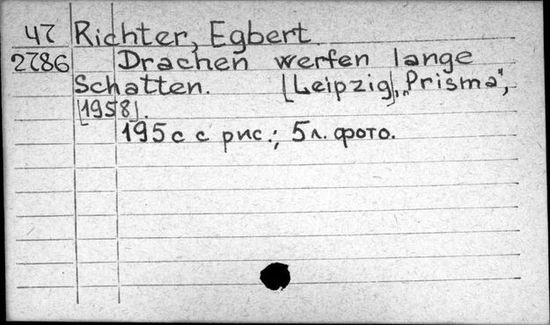 47 Richter, Egbert
2786 Drachen werfen lange
Schatten. [Leipzig], "Prisma",
[1958].
195 с с рис.; 5 л. фото.